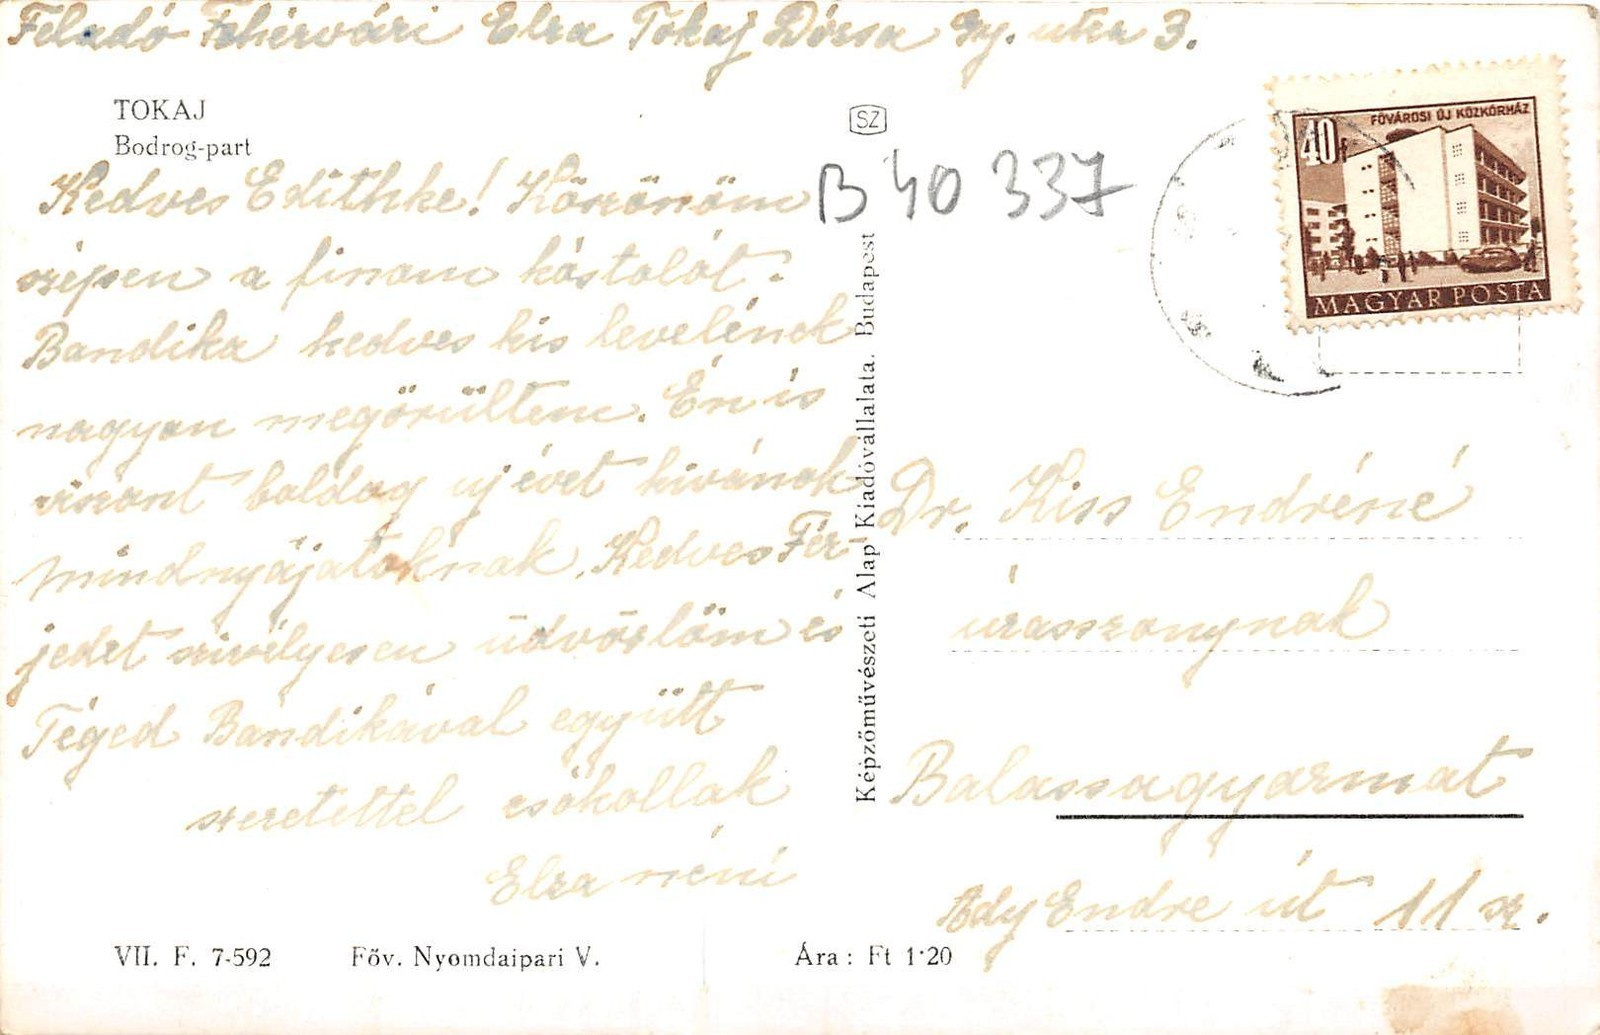 Feladó Fehérvári Elza Tokaj Dózsa Gy. utca 3.
TOKAJ
Bodrog-part
SZ
B 40 337
FŐVÁROSI ÚJ KÖZKÓRHÁZ
40f
MAGYAR POSTA
Kedves Edithke! Köszönöm
szépen a finom kóstolót.
Bandika kedves kis levelének
nagyon megörültem. Én is
viszont boldog uj évet kivánok
mindnyájatoknak. Kedves Fér-
jedet szivélyesen üdvözlöm és
Téged Bandikával együtt
szeretettel csókollak
Elza néni
Képzőművészeti Alap Kiadóvállalata, Budapest
Dr. Kiss Endréné
úrasszonynak
Balassagyarmat
Ady Endre út 11 sz.
VII. F. 7-592 Főv. Nyomdaipari V. Ára: Ft 1·20